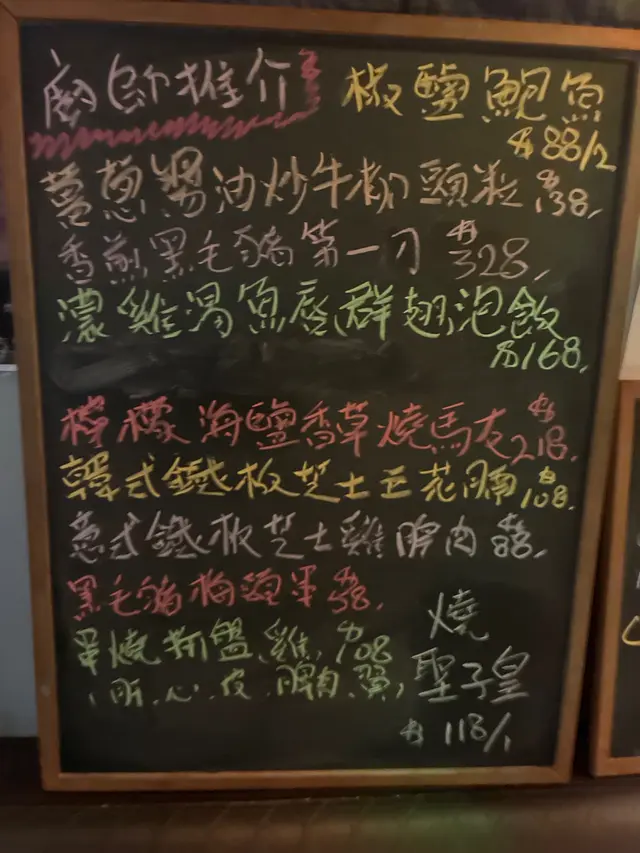 廚師推介
椒鹽鮑魚
$88/2
薑蔥醬油炒牛柳頭粒 $138.
香煎黑毛豬第一刀 $328.
濃雞湯魚唇群翅泡飯
$168.
檸檬海鹽香草燒馬友 $218.
韓式鐵板芝士五花腩 $108.
意式鐵板芝士雞髀肉 $88.
黑毛豬梅頭串 $58.
串燒拼盤 雞 $108
心 皮 髀肉 翼)
燒
聖子皇
$118/1